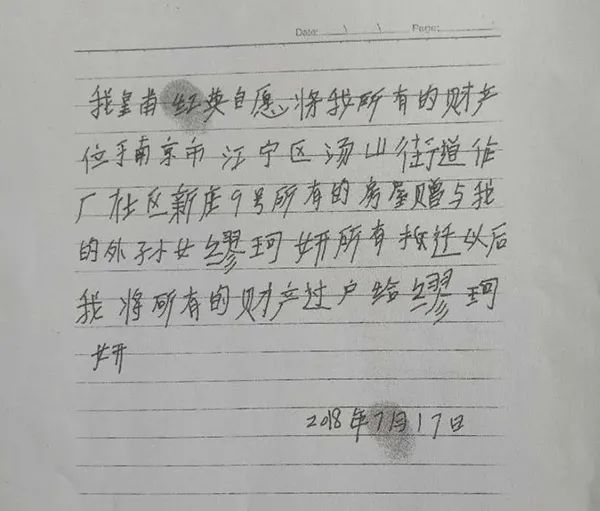 Date: \ \ Page:
我皇甫红英自愿、将我所有的财产
位于南京市江宁区汤山街道作
厂社区新庄9号所有的房屋赠与我
的外孙女缪珂妍所有拆迁以后
我将所有的财产过户给缪珂
妍
2018年7月17日